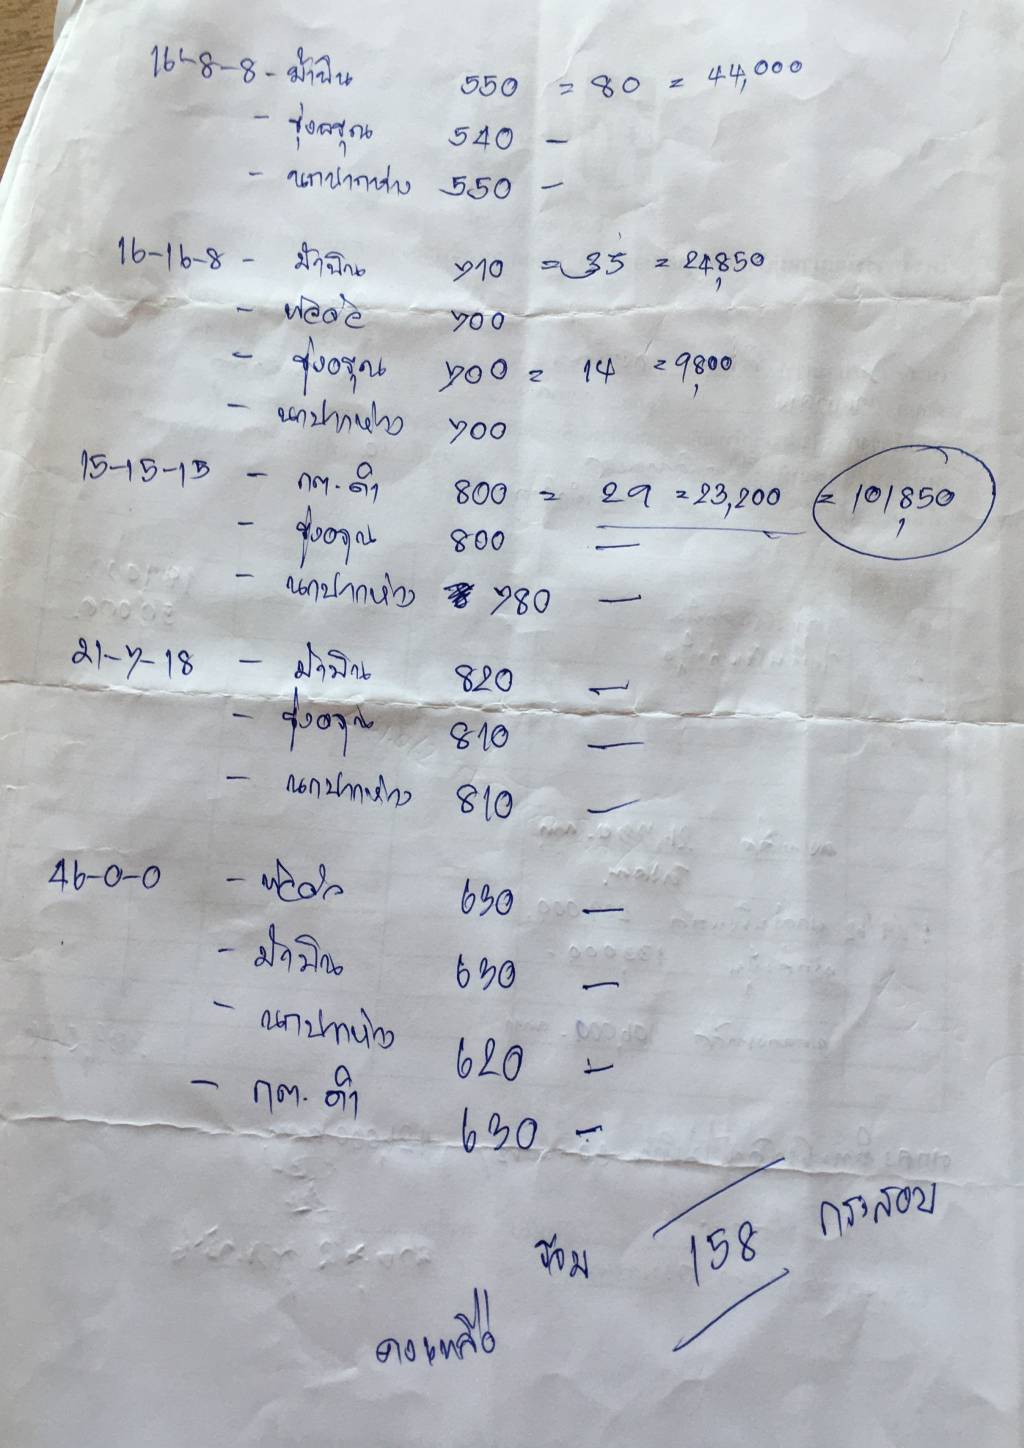 16-8-8 - ม้าบิน 550 = 80 = 44,000
- รุ่งอรุณ 540 -
- นกปากห่าง 550 -
16-16-8 - ม้าบิน 710 = 35 = 24,850
- 700
- รุ่งอรุณ 700 = 14 = 9,800
- นกปากห่าง 700
15-15-15 - กต. ดำ 800 = 29 = 23,200 = 101,850
- รุ่งอรุณ 800 -
- นกปากห่าง 780 -
21-7-18 - ม้าบิน 820 -
- รุ่งอรุณ 810 -
- นกปากห่าง 810 -
46-0-0 - 630 -
- ม้าบิน 630 -
- นกปากห่าง 620 -
- กต. ดำ 630 -
รวม 158 กระสอบ